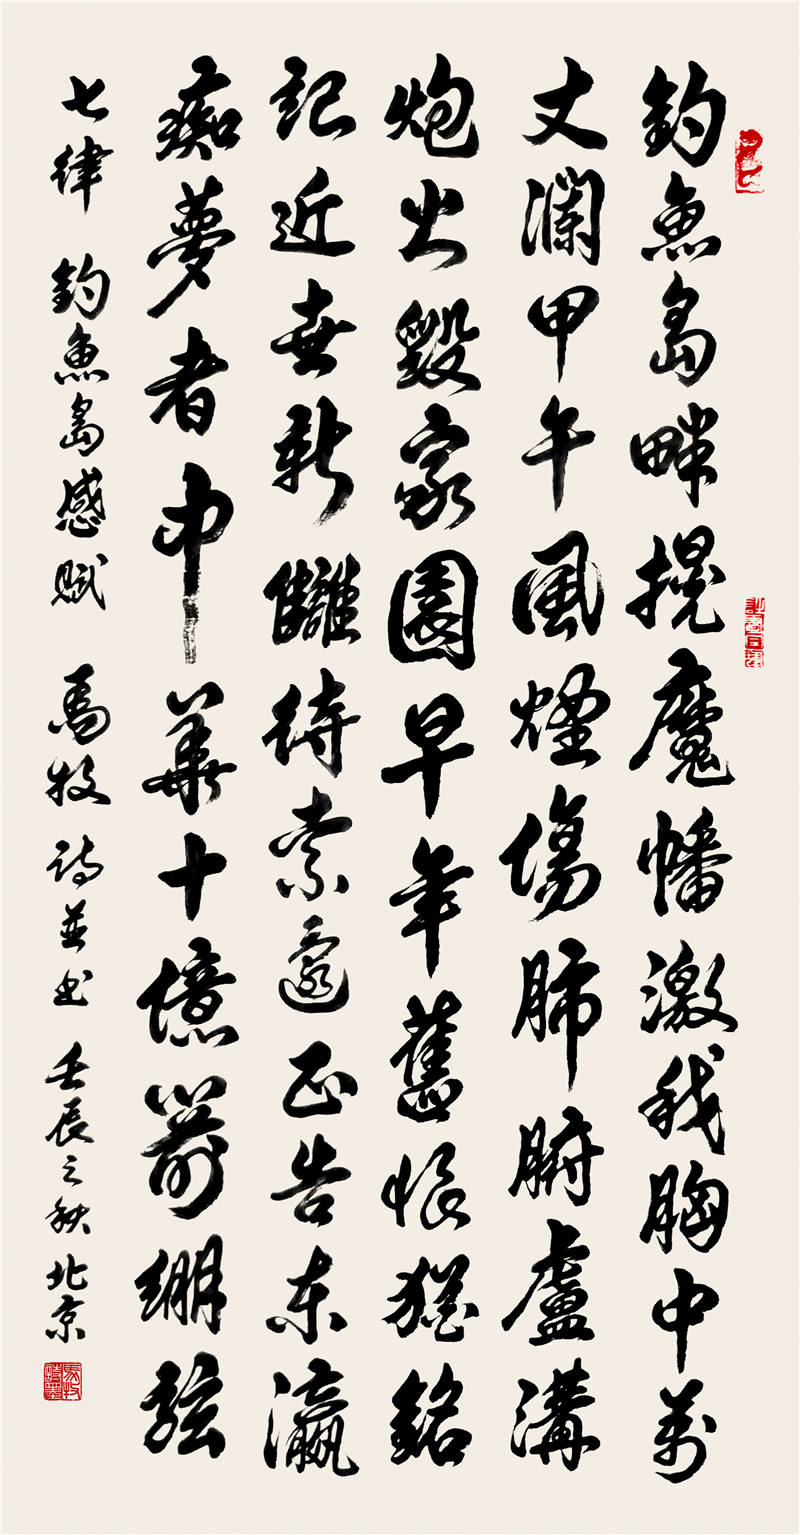 釣魚島畔挽魔幡激我胸中萬
丈瀾甲午風煙傷肺腑盧溝
炮火毀家園早年舊恨猶銘
記近世新讎待索還正告東瀛
痴夢者中華十億箭繃弦
七律 釣魚島感賦 馬牧詩並書 壬辰之秋北京